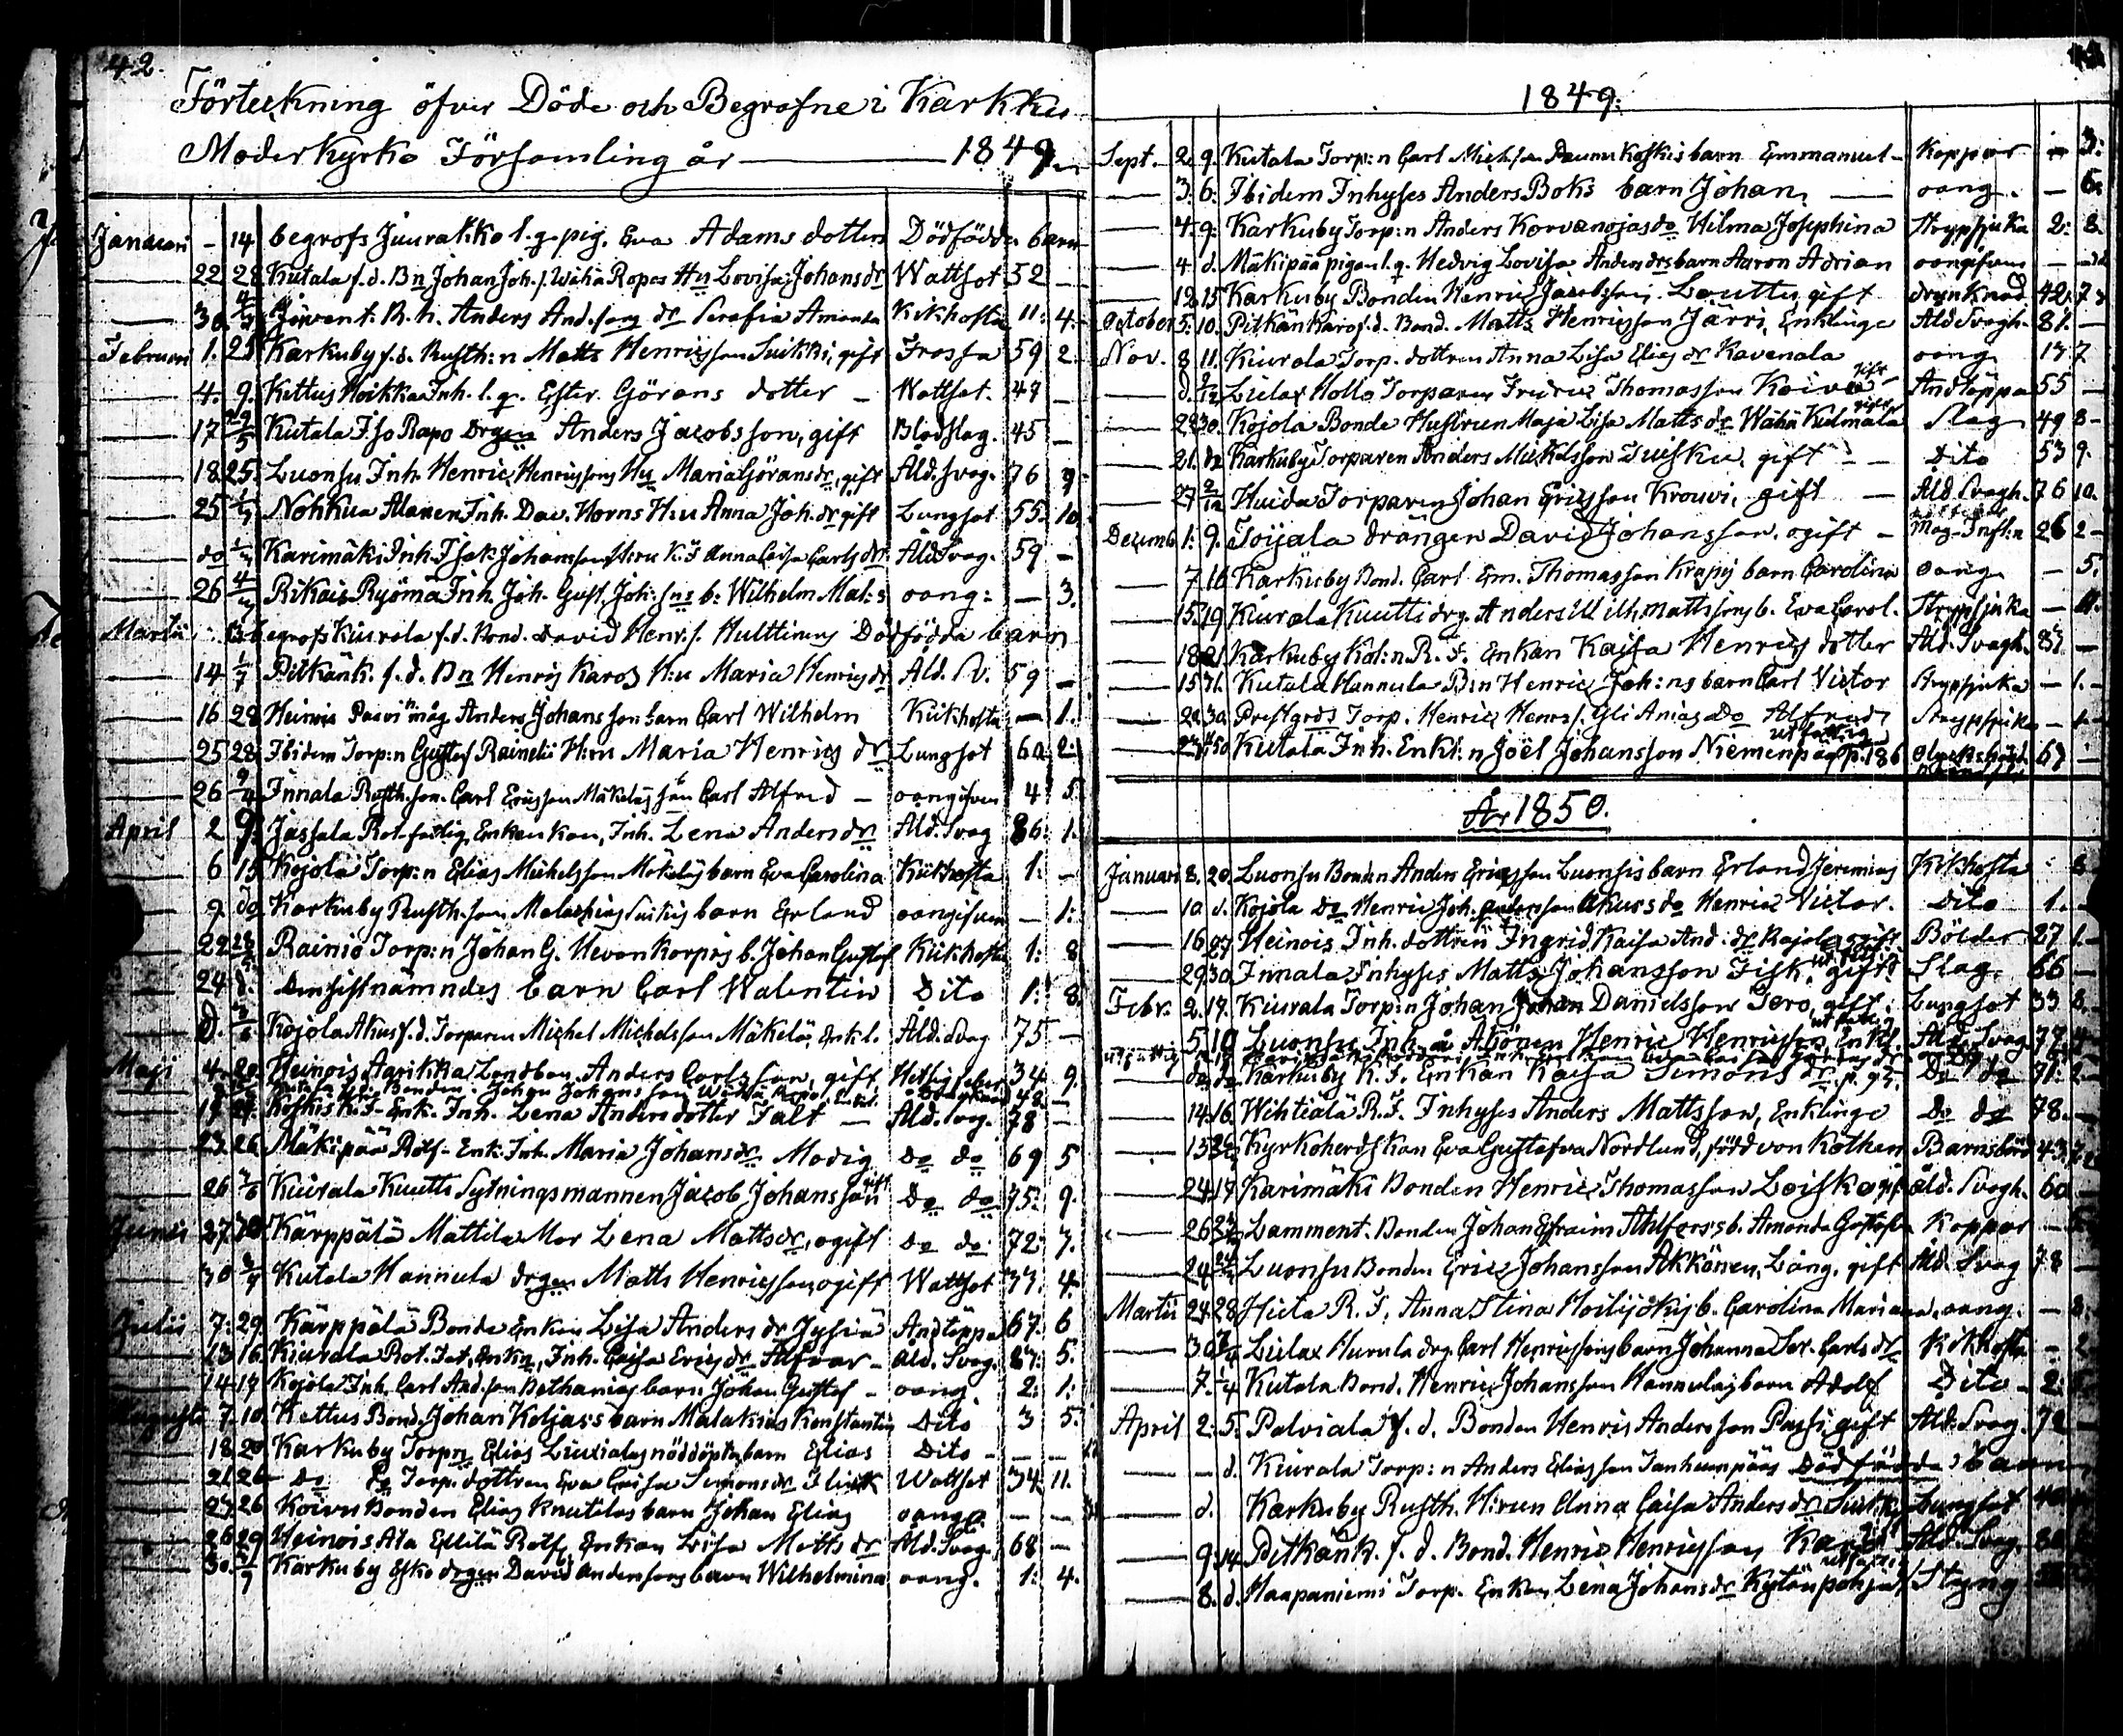 42.
Förteckning öfver Döde och Begrafne i Karkku
Moderkyrko Församling år — 1849.
Januari - 14 begrofs Juurakko l. q. pig. Eva Adams dotters Dödfödda barn
— 22 28 Kutala f. d. Bn Johan Joh. s. Wähä Rapos Hu Lovisa Johansdr Wattsot 52 —
— 30 Järvent. R. h. Anders And.sons dr Serafia Amanda Kikhosta 11: 4.
Februari 1. 25 Karkuby f. d. Rusth:n Matts Henricsson Suikki, gift Frossa 59 2.
— 4. 9. Kettus Heikka Inh. l. q. Ester Görans dotter — Wattsot. 47 —
— 17 Kutala Iso Rapo Drgen Anders Jacobsson, gift Blodslag. 45 —
— 18 25. Luonsu Inh. Henric Henricssons Hu Maria Göransdr, gift Ald. svag. 76 9
— 25 Nohkua Alanen Inh. Dav. Horns H:u Anna Joh. dr gift Lungsot 55. 10
— do Karimäki Inh. Isak Johansson Hru K. F Anna Caisa Carlsdr Ald Svag. 59 —
— 26 Rikais Ryömä Inh. Joh. Gust. Joh: sns b: Wilhelm Mat:s oang: — 3.
Martii begrofs Kiurala f. d. Bond. David Henr. s. Hulttinens Dödfödda barn
— 14 Pitkänk. f. d. Bn Henris Karos H:u Maria Henricsdr Ald. S. 59 —
— 16 28 Heinois Pasvi måg Anders Johansson barn Carl Wilhelm Kikhosta — 1.
— 25 28 Ibidem Torp:n Gustaf Rainelii H:ru Maria Henrics dr Lungsot 60 2:
— 26 Innala Rusth.son. Carl Ericsson Mäkeläs son Carl Alfred — oangifven 4 5
April 2 9. Jassala Rot-fattig Enkan kan, Inh. Lena Andersdr Ald. Svag 86: 1.
— 6 15 Kojola Torp:n Elias Michelsson Mäkeläs barn Eva Carolina Kikhosta 1: —
— 9 do Karkuby Rusth.son Malachias Suikis barn Erland oangifven — 1:
— 22 Rainio Torp:n Johan G. Hevonkorpis b. Johan Gustaf Kikhosta 1: 8
— 24 d. Densistnämndes barn Carl Walentin Dito 1: 8.
— D. Kojola Akus f. d. Torparen Michel Michelsson Mäkelä, Enkl. Äld. Svag 75 —
Maji 4. 20. Heinois Aarikka Landbon Anders Carlsson, gift Hetsigfeber 34. 9.
Kutala f. d. Bonden Johan Johansson Wähä Rapo, Enkl. 48. —
— 19 27. Koskis K. F. Enk. Inh. Lena Anders dotter Talt — Ald. svag. 78 —
— 23 26 Mäkipää Rotf- Enk. Inh. Maria Johansdr Modig do do 69 5
— 26 Kiurala Kuutts Sytningsmannen Jacob Johansson gift Do do 75: 9.
Junii 27. 30 Kärppälä Mattila Mor Lena Mattsdr, ogift do do: 72: 7.
— 30 Kutala Hannula drgen Matts Henricsson, ogift Wattsot 37. 4.
Julii 7: 29 Kärppälä Bonde Enkan Lisa Anders dr Jysiä Andtäppa 67. 6
— 13 16. Kiurala Rot. Fat, Enkn, Inh. Caisa Ericsdr Alfvar — Ald. Svag. 87: 5.
— 14 17 Kojola Inh. Carl And.son Bethanias barn Johan Gustaf — oang. 2: 1:
Augusti 7. 10. Kettus Bond. Johan Koljas:s barn Malakias Konstantin Dito 3 5.
— 18. 20 Karkuby Torpn Elias Liuxialas nöddöpta barn Elias Dito — — —
— 21 26 do do Torp. dottren Eva Caisa Simonsdr Flinck Wattsot 34 11.
— 23 26 Koivu Bonden Elias Knutilas barn Johan Elias oang — —
— 26 29 Heinois Ala Ellilä Rotf. Enkan Lisa Matts dr Ald. Svag. 68 —
— 30. Karkuby Esko drgen David Anderssons barn Wilhelmina oang. 1: 4.
1849:
Sept. 2. 9. Kutala Torp:n Carl Mich.son Daunu Koskis barn Emmanuel — Koppor — 3:
— 3. 6. Ibidem Inhyses Anders Boks barn Johan — oang. — 6.
— 4. 9: Karkuby Torp:n Anders Korvanojas do Hilma Josephina Strypsjuka 2: 8.
— 4 d. Mäkipää pigan l. q. Hedvig Lovisa Anders drs barn Aaron Adrian oangifven — —
— 12. 15. Karkuby Bonden Henric Jacobsson Lauttu, gift drunknad. 42. 7
October 5. 10. Pitkänkaro f. d. Bond. Matts Henricsson Järri, Enklinge Ald Svagh. 81. —
Nov. 8 11. Kiurala Torp. dottren Anna Lisa Elias dr Kavenala oang 17 7
— d. Liulax Hollo Torparen Fredric Thomasson Koivu gift — Andtäppa 55 —
— 23 30. Kojola Bonde Hustrun Maja Lisa Matts dr Wähä Kulmala gift Slag 49 8 —
— 21. do Karkuby Torparen Anders Mickelsson Tuisku, gift — Dito 53 9.
— 27 Huida Torparen Johan Ericsson Krouvi, gift — Ald Svagh. 76 10.
Decemb 1: 9. Toijala drängen David Johansson, ogift — Mag-Infl:n 26 2 —
— 7. 16 Karkuby Bond. Carl Em. Thomasson Krapis barn Carolina oang — 5.
— 15. 19 Kiurala Kuutti drg. Anders Wilh. Mattssons b. Eva Carol. Strypsjuka — 11.
— 18 21 Karkuby Köl:n R. F. Enkan Kaisa Henrics dotter Ald. Svagh. 87 —
— 15 31. Kutala Hannula B:n Henric Joh:ns barn Carl Victor Strypsjuka — 1. —
— 20 30 Prestgrds Torp. Henric Henrs. Yli Anias Do Alfred Strypsjuka — 1 —
— 27 Kutala Inh. Enkl:n Joël Johansson Niemenpää p. 186 utfattig Olyckshänd. 67 —
År 1850.
Januari 8. 20. Luonsu Bonden Anders Ericsson Luonsis barn Erland Jeremias Kikhosta : 8
— 10 d. Kojola Do Henric Joh. Andersson Akus:s do Henric Victor. Dito 1. —
— 16 27 Heinois Inh. dottren Ingrid Kaisa And: dr Rajala ogift Bölder 27 1. —
— 29 30 Innala Inhyses Matts Johansson Fisk, gift Slag 66 —
Febr. 2. 17. Kiurala Torp:n Johan Johan Danielsson Tero, gift: Lungsot 33 8.
— 5 10 Luonsu Inh. Alfönen Henric Henricsson, Enkl. utfattig Ald. Svag 77.
— do do Karkuby K. F. Enkan Kaisa Simons dr p. 95. Do do 71: 2 —
— 14 16. Wihtiälä R. F. Inhyses Anders Mattsson, Enklinge Do do 78. —
— 15 Kyrkoherdskan Eva Gustafva Nordlund, född von Kothen Barnsbörd 43
— 24 17 Karimäki Bonden Henric Thomasson Loiska gift Äld. Svagh. 60 —
— 26 Lamment. Bonden Johan Efraim Ahlfors:s b. Amanda Gustafva Koppor —
— 24 Luonsu Bonden Eric Johansson Akkänen, Lång, gift Ald. Svag 78 —
Martii 24. 28 Hieta R. F. Anna Stina Hoilijokis b. Carolina Mariana oang. — 8:
— 30 Liulax Hurula drg. Carl Henricssons barn Johanna Ser. Carls dr Kikhosta — 2
— 7. Kutala Bond. Henric Johansson Hannulas barn Adolf Dito — 2:
April 2: 5: Palviala f. d. Bonden Henric Andersson Passi, gift Ald. Svag. 72 —
— — d. Kiurala Torp:n Anders Eliasson Tanhuanpääs Dödfödda barn
d. Karkuby Rusth. H:run Anna Caisa Anders dr Suikki Lungsot
— 9. 14. Pitkänk. f. d. Bond. Henric Henricsson Karo Ald. Svag.
— 8. d. Haapaniemi Torp. Enkan Lena Johansdr Kylänpohja utfattig Styng